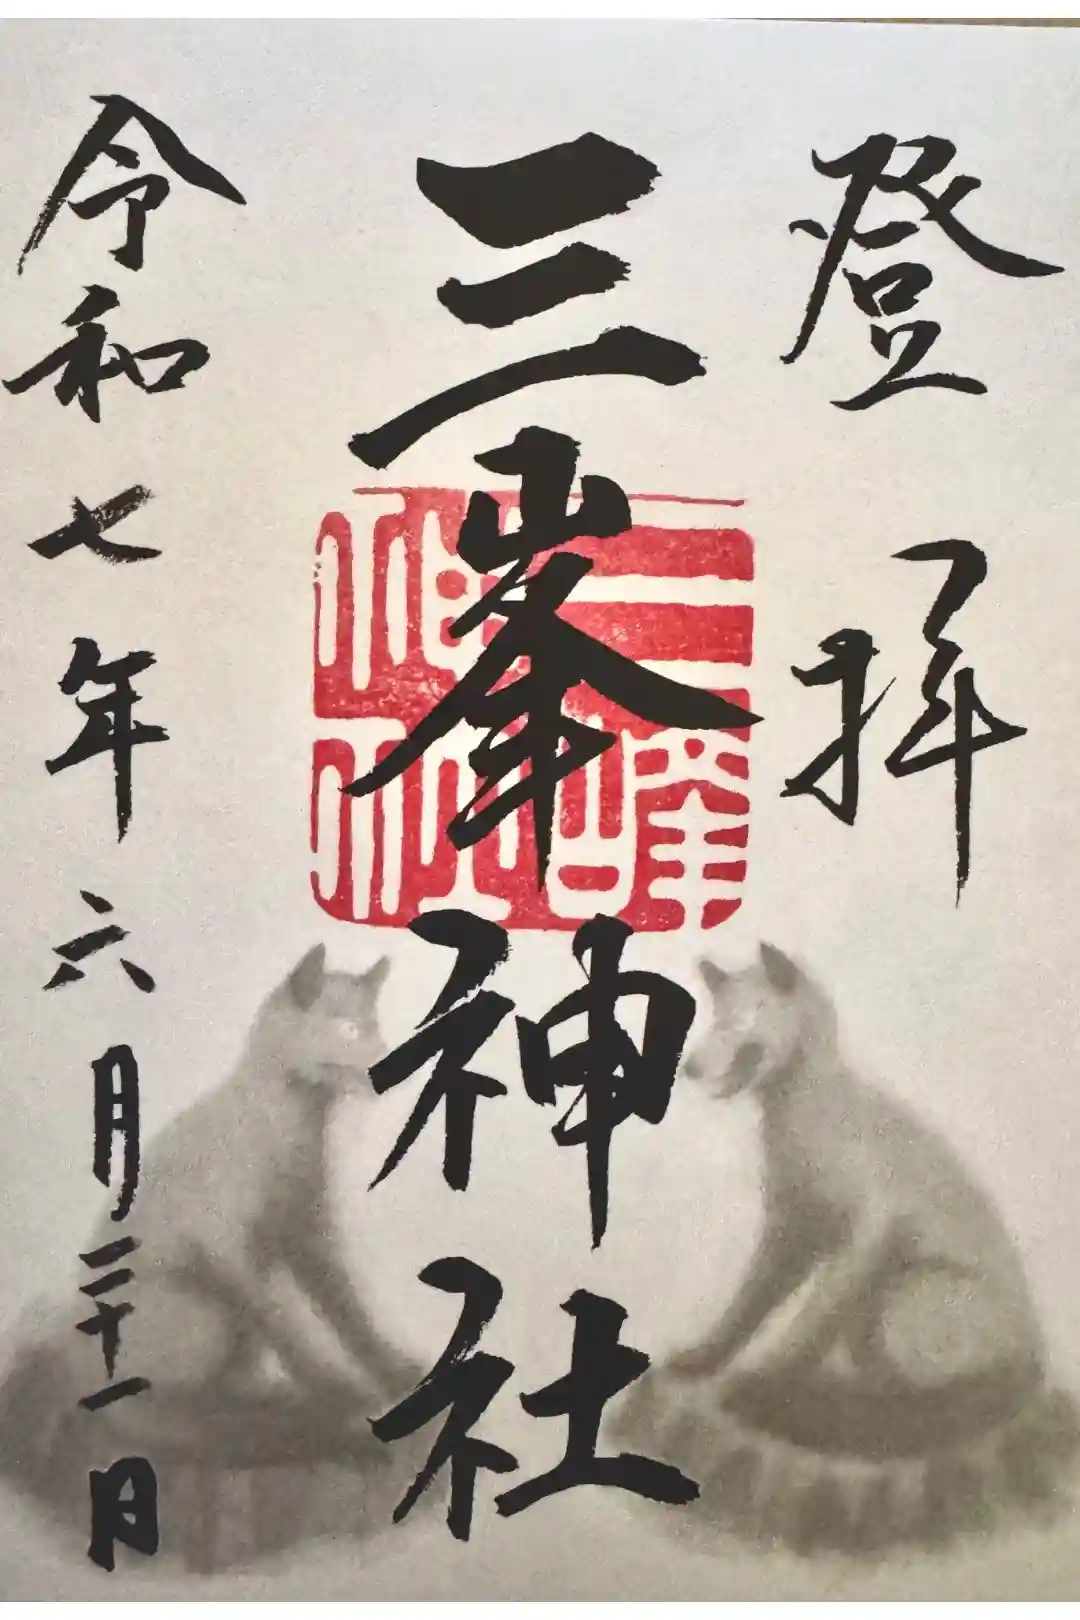 登拝
三峯神社
三峯神社
令和七年六月二十一日